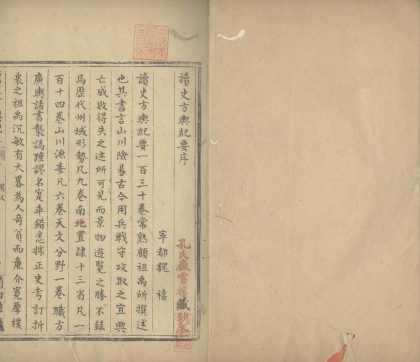 讀史方輿紀要序
寧都魏禧
讀史方輿紀要一百三十卷常熟顧祖禹所撰述
也其書言山川險易古今用兵戰守攻取之宜興
亡成敗得失之迹所可見而景物遊覽之勝不錄
焉歷代州域形勢凡九卷南北直隸十三省凡一
百十四卷山川源委凡六卷天文分野一卷職方
廣輿諸書襲譌踵謬名實乖錯悉據正史考訂折
衷之祖禹沉敏有大略為人奇貧而廉介寬厚樸